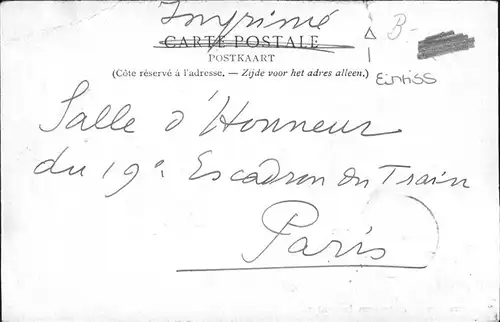 Imprimé
CARTE POSTALE
POSTKAART
(Côte réservé à l'adresse. — Zijde voor het adres alleen.)
B-
Einriss
Salle d'Honneur
du 19e Escadron du Train
Paris